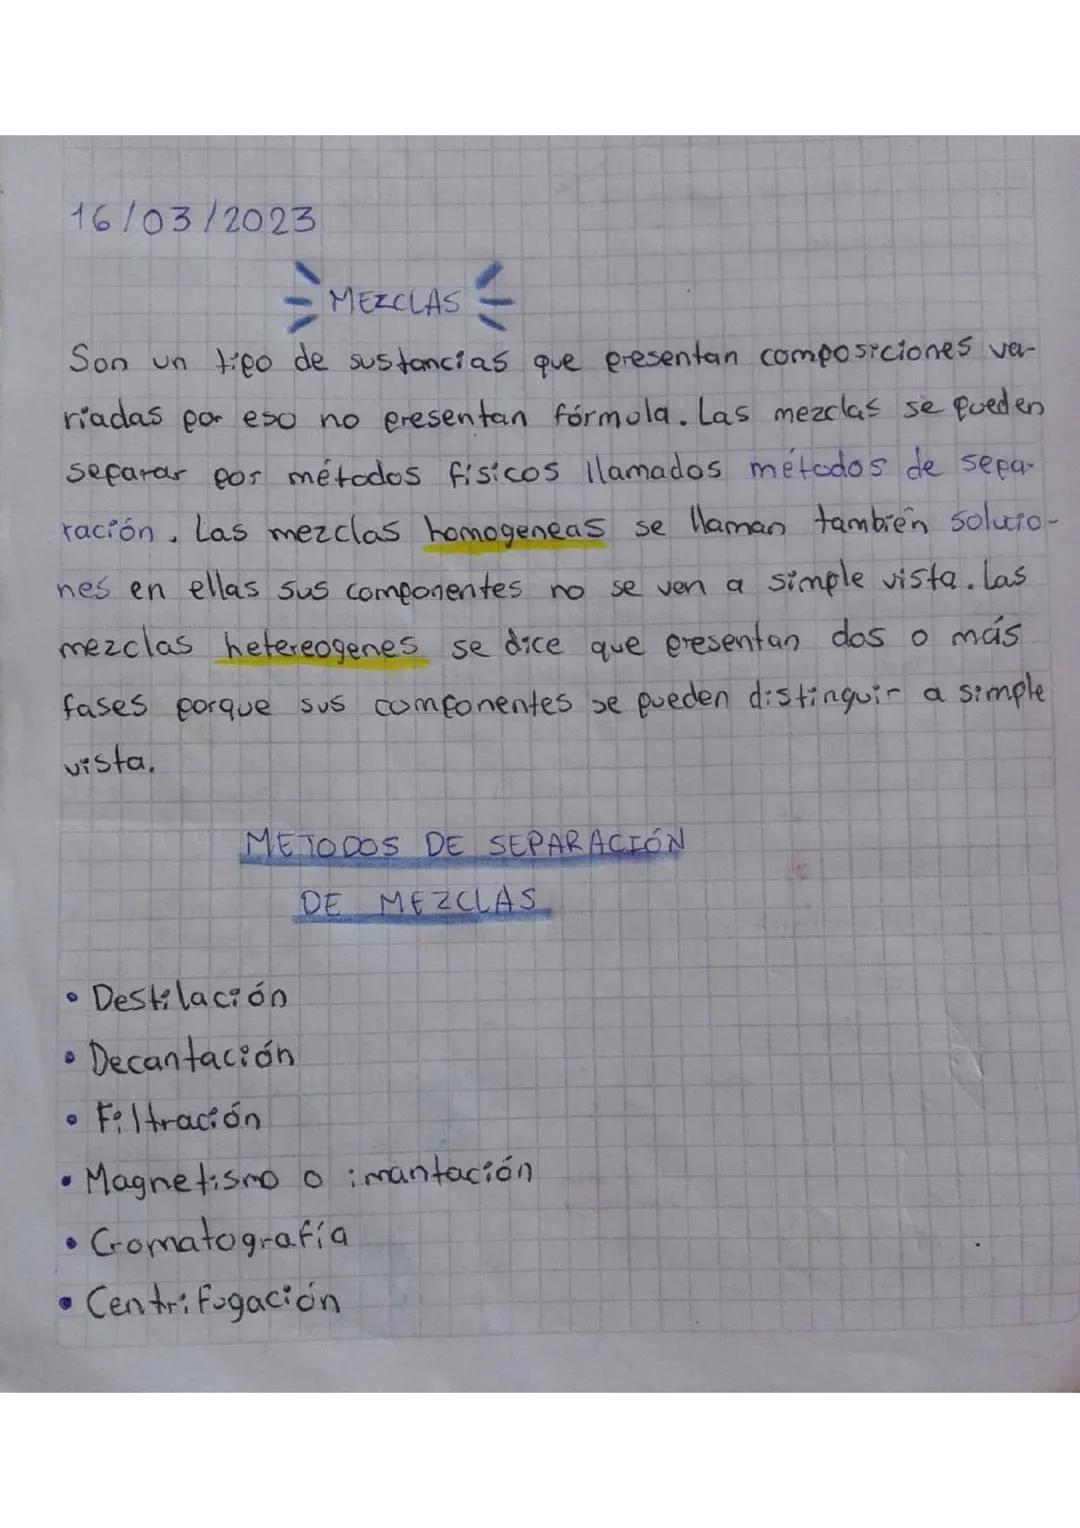 16/03/2023
MEZCLAS
Son un tipo de sustancias que presentan composiciones va-
riadas por eso no presentan fórmula. Las mezclas se pueden
separar por métodos físicos llamados métodos de sepa-
ración. Las mezclas homogeneas se llaman también solucio-
nes en ellas sus componentes no se ven a simple vista. Las
mezclas hetereogenes se dice que presentan dos o más
fases porque sus componentes se pueden distinguir a simple
vista.
METODOS DE SEPARACIÓN
DE MEZCLAS
• Destilación
• Decantación
• Filtración
• Magnetismo o imantación
• Cromatografía
• Centrifugación